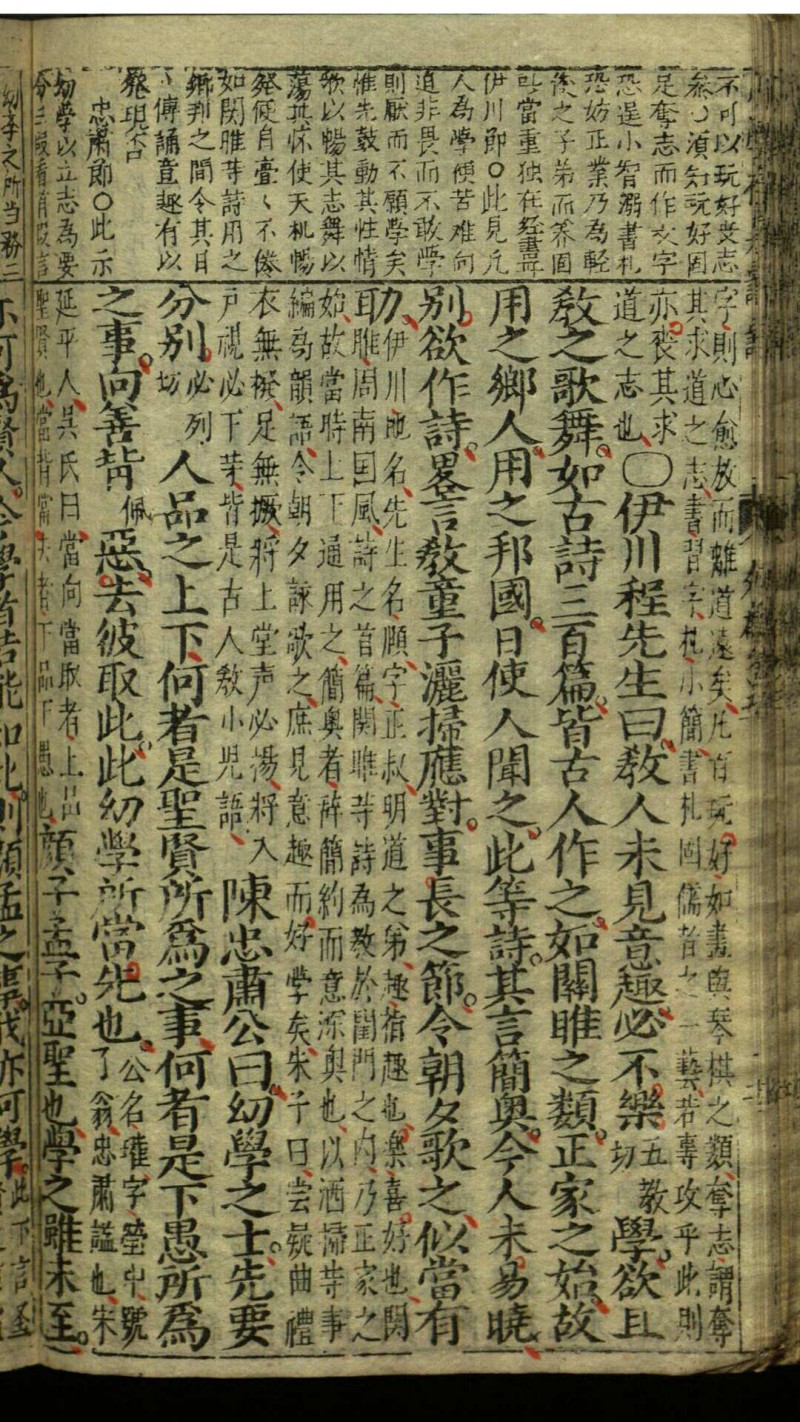 不可以玩好喪志
須知玩好固
足奪志而作文字
恐逞小智溺書札
恐妨正業乃為輕
俊之子弟而
當重独在經書耳
伊川節〇此見凡
人為學便苦难向
道非畏而不敢學
則厭而不願學矣
惟先鼓動其性情
歌以暢其志舞以
蕩其怀使天机暢
然便自亹〻不倦
如関雎等詩用之
鄉邦之間令其日
〻傳誦意趣有以
發現
忠肅節〇此示
幼學以立志為要
今三叚看首叚言
字則心愈放而離道遠矣凡百玩好如畫與琴棋之類奪志謂奪
其求道之志書習字札小簡書札固儒者之一藝若專攻乎此則
亦喪其求
道之志也〇伊川程先生曰教人未見意趣必不樂五教切學欲且
教之歌舞如古詩三百篇皆古人作之如關雎之類正家之始故
用之鄉人用之邦國日使人聞之此等詩其言簡奧今人未易曉
別欲作詩畧言教童子灑掃應對事長之節令朝夕歌之似當有
力伊川地名先生名頤字正叔明道之弟趣指趣也樂喜好也関
雎周南国風詩之首篇関雎等詩為教於閨門之内乃正家之
始故當時上下通用之簡奧者辭簡約而意深奧也以洒掃等事
編為韻語令朝夕諑歌之庶見意趣而好学矣朱子曰嘗疑曲禮
衣無撥足無撅將上堂声必揚將入
戶視必下等皆是古人教小児語陳忠肅公曰幼學之士先要
分別必列切人品之上下何者是聖賢所爲之事何者是下愚所爲
之事向善背佩惡去彼取此此幼學所當先也公名瓘字瑩中號
了翁忠肅謚也宋
延平人吳氏曰當向當取者上品
聖賢也當背當去者下品下愚也顏子孟子亞聖也學之雖未至
亦可爲賢人今學者若能知此則顏孟之事我亦可學此下言